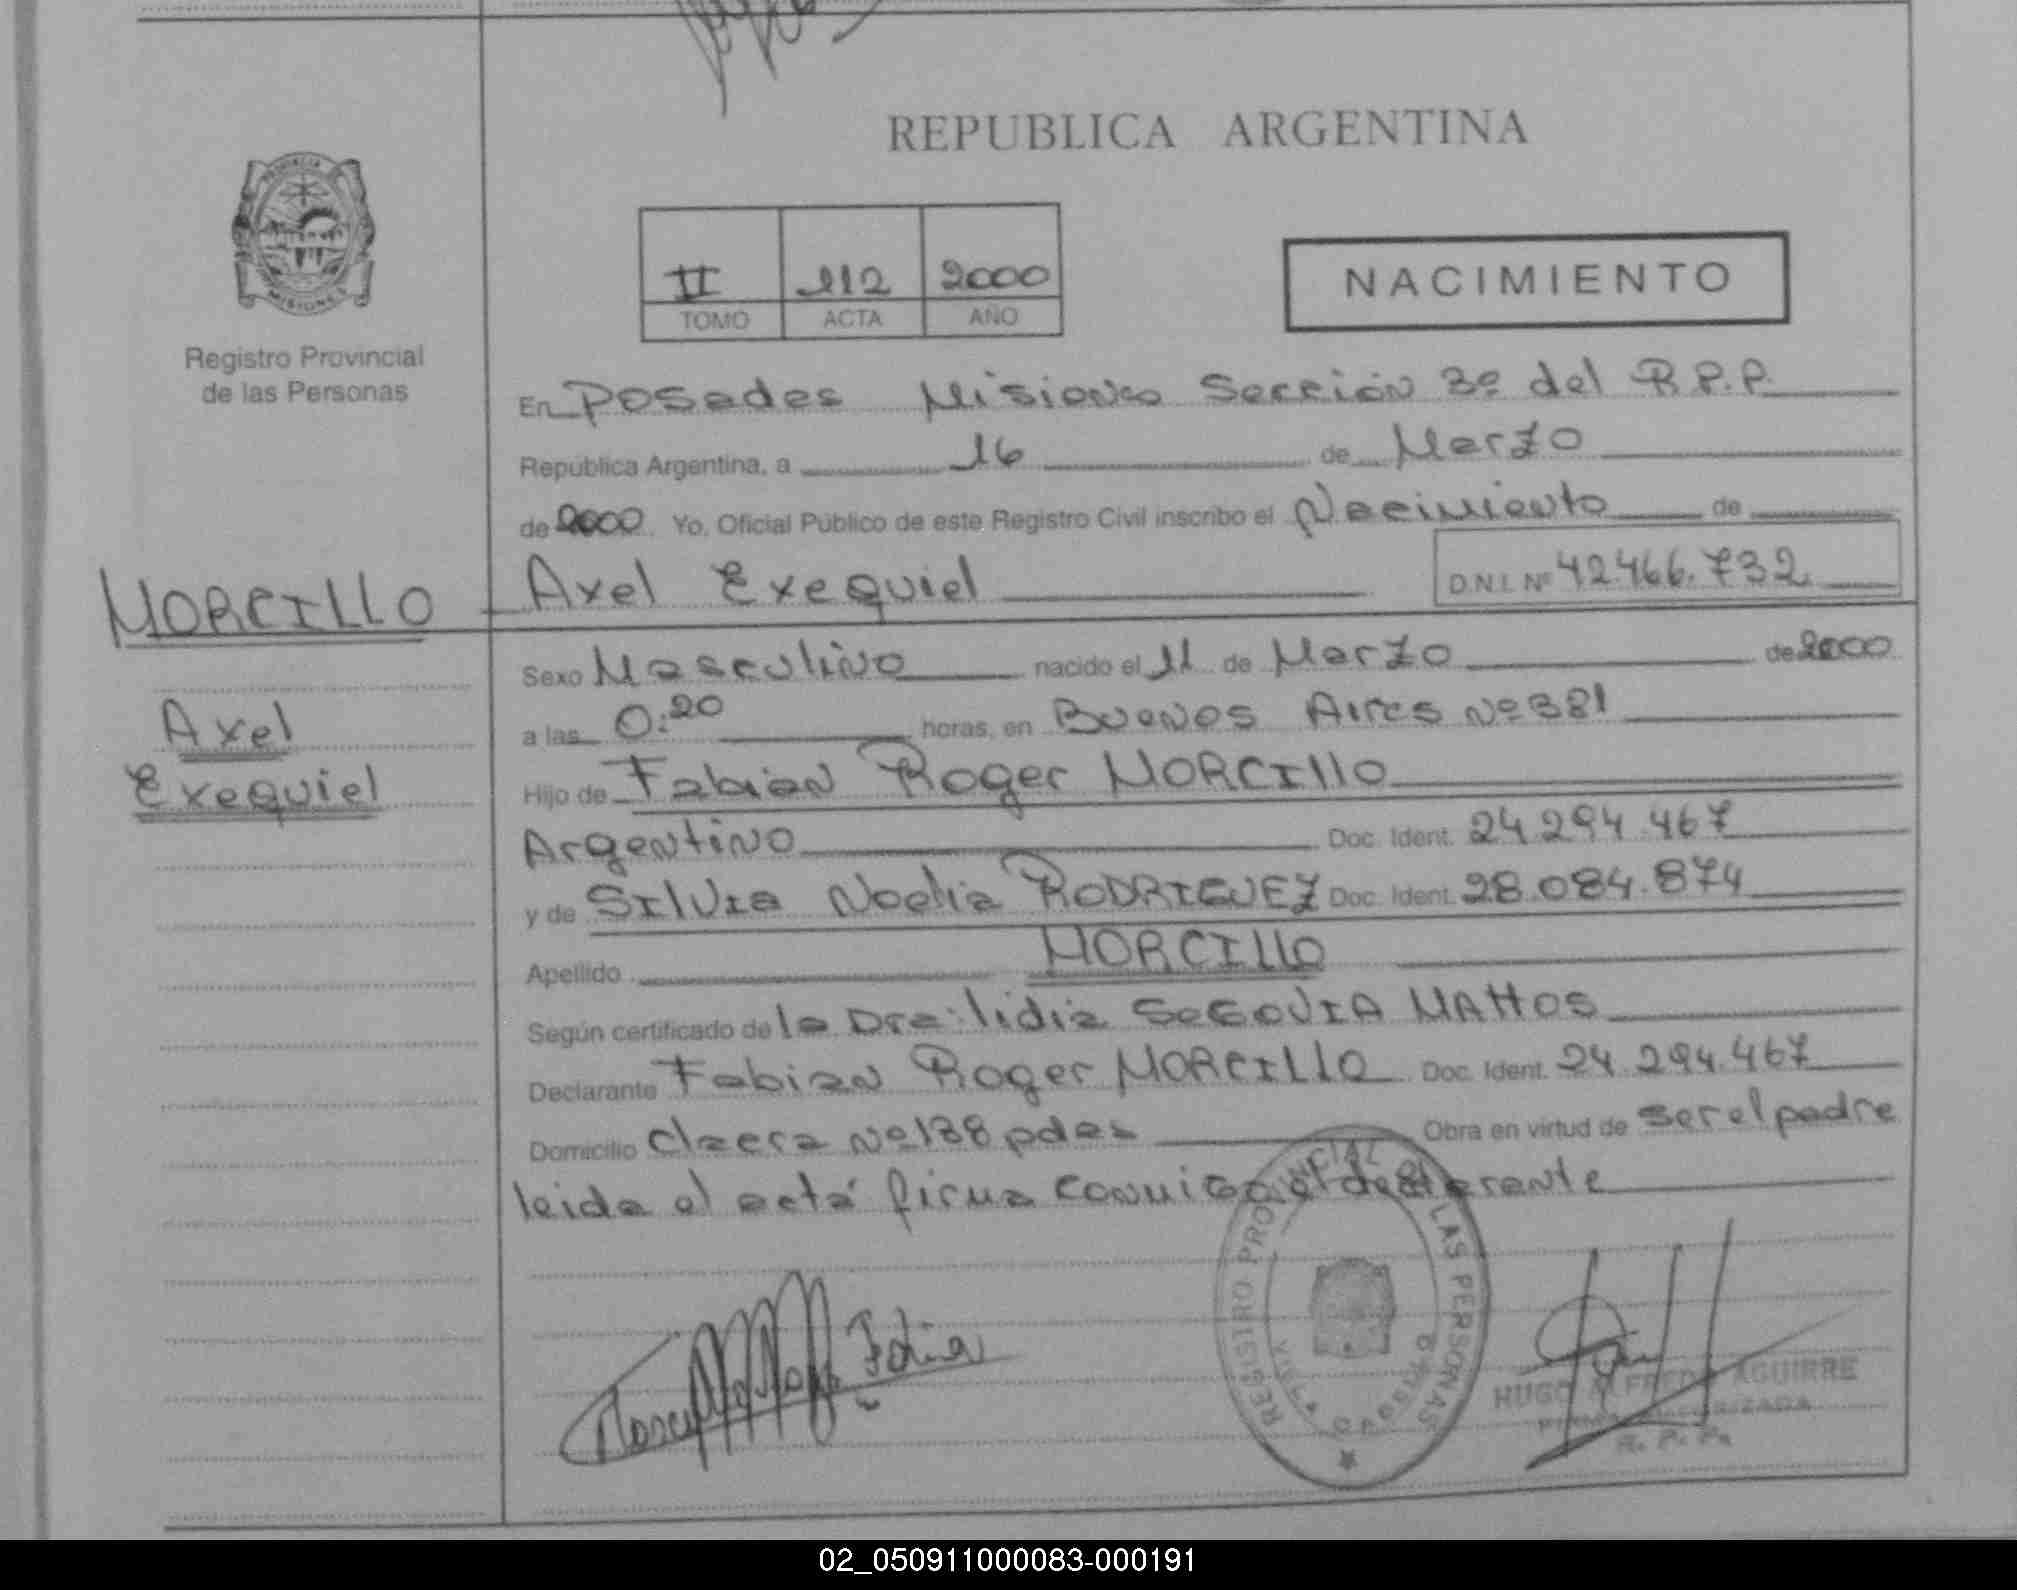 REPUBLICA ARGENTINA
PROVINCIA
MISIONES
Registro Provincial
de las Personas
II 112 2000
TOMO ACTA AÑO
NACIMIENTO
En Posadas Misiones Sección 3º del R.P.P.
República Argentina, a 16 de Marzo
de 2000 Yo, Oficial Público de este Registro Civil inscribo el Nacimiento de
Axel Exequiel D.N.I. Nº 42.466.732
MORCILLO
Axel
Exequiel
Sexo Masculino nacido el 11 de Marzo de 2000
a las 0:20 horas, en Buenos Aires Nº 381
Hijo de Fabian Roger MORCILLO
Argentino Doc. Ident. 24.294.467
y de SILVIA Noelia RODRIGUEZ Doc. Ident. 28.084.874
Apellido MORCILLO
Según certificado de la Dra: lidia SEGOVIA MATTOS
Declarante Fabian Roger MORCILLO Doc. Ident. 24.294.467
Domicilio Claera Nº 188 pdas Obra en virtud de ser el padre
leida el acta firma conmigo el declarante
REGISTRO PROVINCIAL DE LAS PERSONAS
POSADAS
HUGO ALFREDO AGUIRRE
FIRMA AUTORIZADA
R. P. P.
02_050911000083-000191